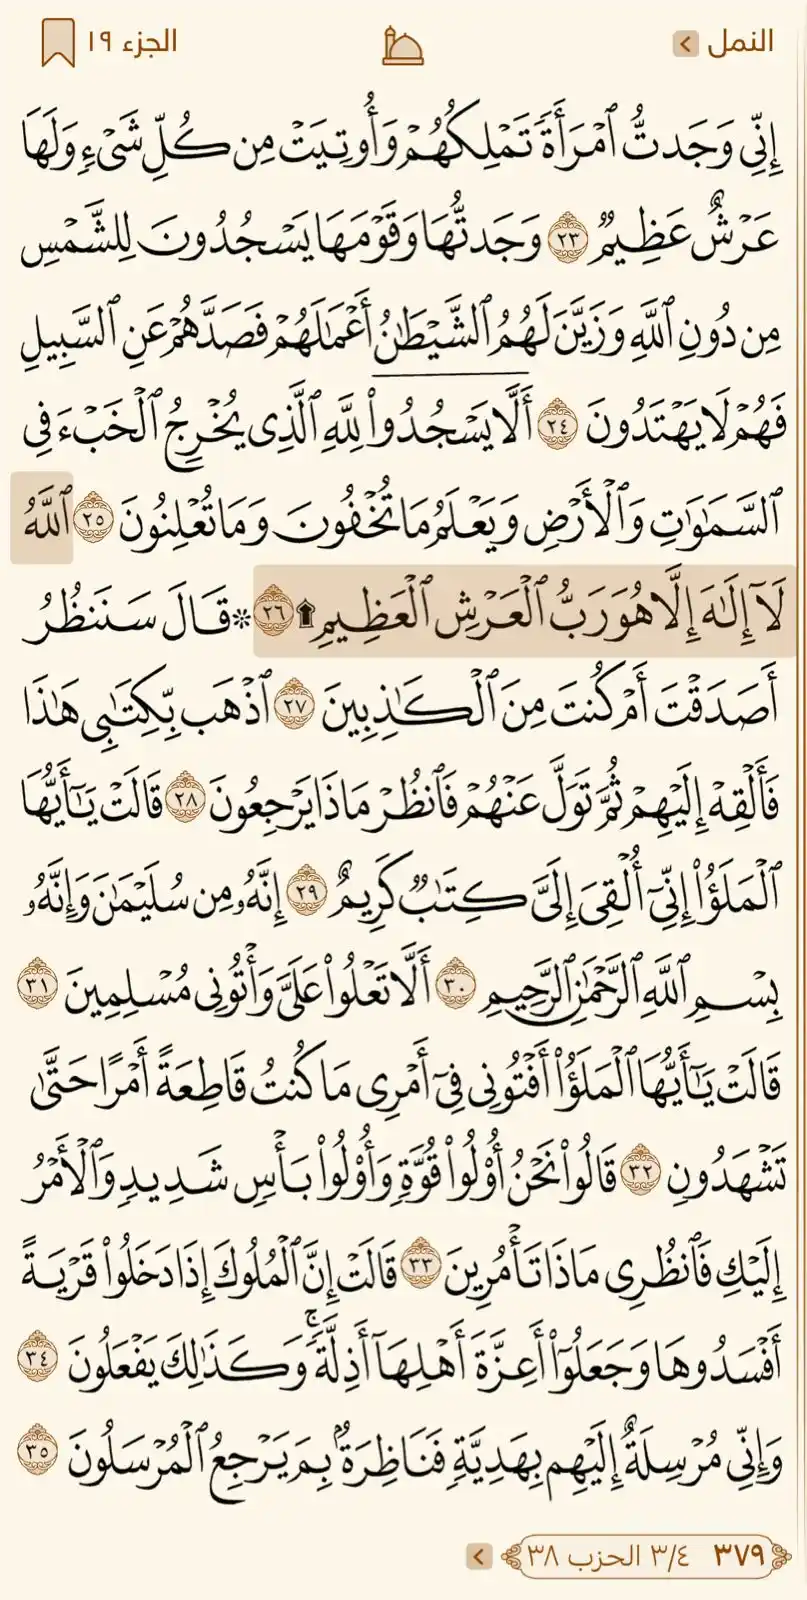 النمل
الجزء ١٩
إِنِّي وَجَدتُّ ٱمْرَأَةً تَمْلِكُهُمْ وَأُوتِيَتْ مِن كُلِّ شَىْءٍ وَلَهَا
عَرْشٌ عَظِيمٌ ٢٣ وَجَدتُّهَا وَقَوْمَهَا يَسْجُدُونَ لِلشَّمْسِ
مِن دُونِ ٱللَّهِ وَزَيَّنَ لَهُمُ ٱلشَّيْطَٰنُ أَعْمَٰلَهُمْ فَصَدَّهُمْ عَنِ ٱلسَّبِيلِ
فَهُمْ لَا يَهْتَدُونَ ٢٤ أَلَّا يَسْجُدُوا۟ لِلَّهِ ٱلَّذِى يُخْرِجُ ٱلْخَبْءَ فِى
ٱلسَّمَٰوَٰتِ وَٱلْأَرْضِ وَيَعْلَمُ مَا تُخْفُونَ وَمَا تُعْلِنُونَ ٢٥ ٱللَّهُ
لَآ إِلَٰهَ إِلَّا هُوَ رَبُّ ٱلْعَرْشِ ٱلْعَظِيمِ ۩ ٢٦ ۞ قَالَ سَنَنظُرُ
أَصَدَقْتَ أَمْ كُنتَ مِنَ ٱلْكَٰذِبِينَ ٢٧ ٱذْهَب بِّكِتَٰبِى هَٰذَا
فَأَلْقِهْ إِلَيْهِمْ ثُمَّ تَوَلَّ عَنْهُمْ فَٱنظُرْ مَاذَا يَرْجِعُونَ ٢٨ قَالَتْ يَٰٓأَيُّهَا
ٱلْمَلَؤُا۟ إِنِّىٓ أُلْقِىَ إِلَىَّ كِتَٰبٌ كَرِيمٌ ٢٩ إِنَّهُۥ مِن سُلَيْمَٰنَ وَإِنَّهُۥ
بِسْمِ ٱللَّهِ ٱلرَّحْمَٰنِ ٱلرَّحِيمِ ٣٠ أَلَّا تَعْلُوا۟ عَلَىَّ وَأْتُونِى مُسْلِمِينَ ٣١
قَالَتْ يَٰٓأَيُّهَا ٱلْمَلَؤُا۟ أَفْتُونِى فِىٓ أَمْرِى مَا كُنتُ قَاطِعَةً أَمْرًا حَتَّىٰ
تَشْهَدُونِ ٣٢ قَالُوا۟ نَحْنُ أُو۟لُوا۟ قُوَّةٍ وَأُو۟لُوا۟ بَأْسٍ شَدِيدٍ وَٱلْأَمْرُ
إِلَيْكِ فَٱنظُرِى مَاذَا تَأْمُرِينَ ٣٣ قَالَتْ إِنَّ ٱلْمُلُوكَ إِذَا دَخَلُوا۟ قَرْيَةً
أَفْسَدُوهَا وَجَعَلُوٓا۟ أَعِزَّةَ أَهْلِهَآ أَذِلَّةً ۚ وَكَذَٰلِكَ يَفْعَلُونَ ٣٤
وَإِنِّى مُرْسِلَةٌ إِلَيْهِم بِهَدِيَّةٍ فَنَاظِرَةٌۢ بِمَ يَرْجِعُ ٱلْمُرْسَلُونَ ٣٥
٣٧٩ ٣/٤ الحزب ٣٨